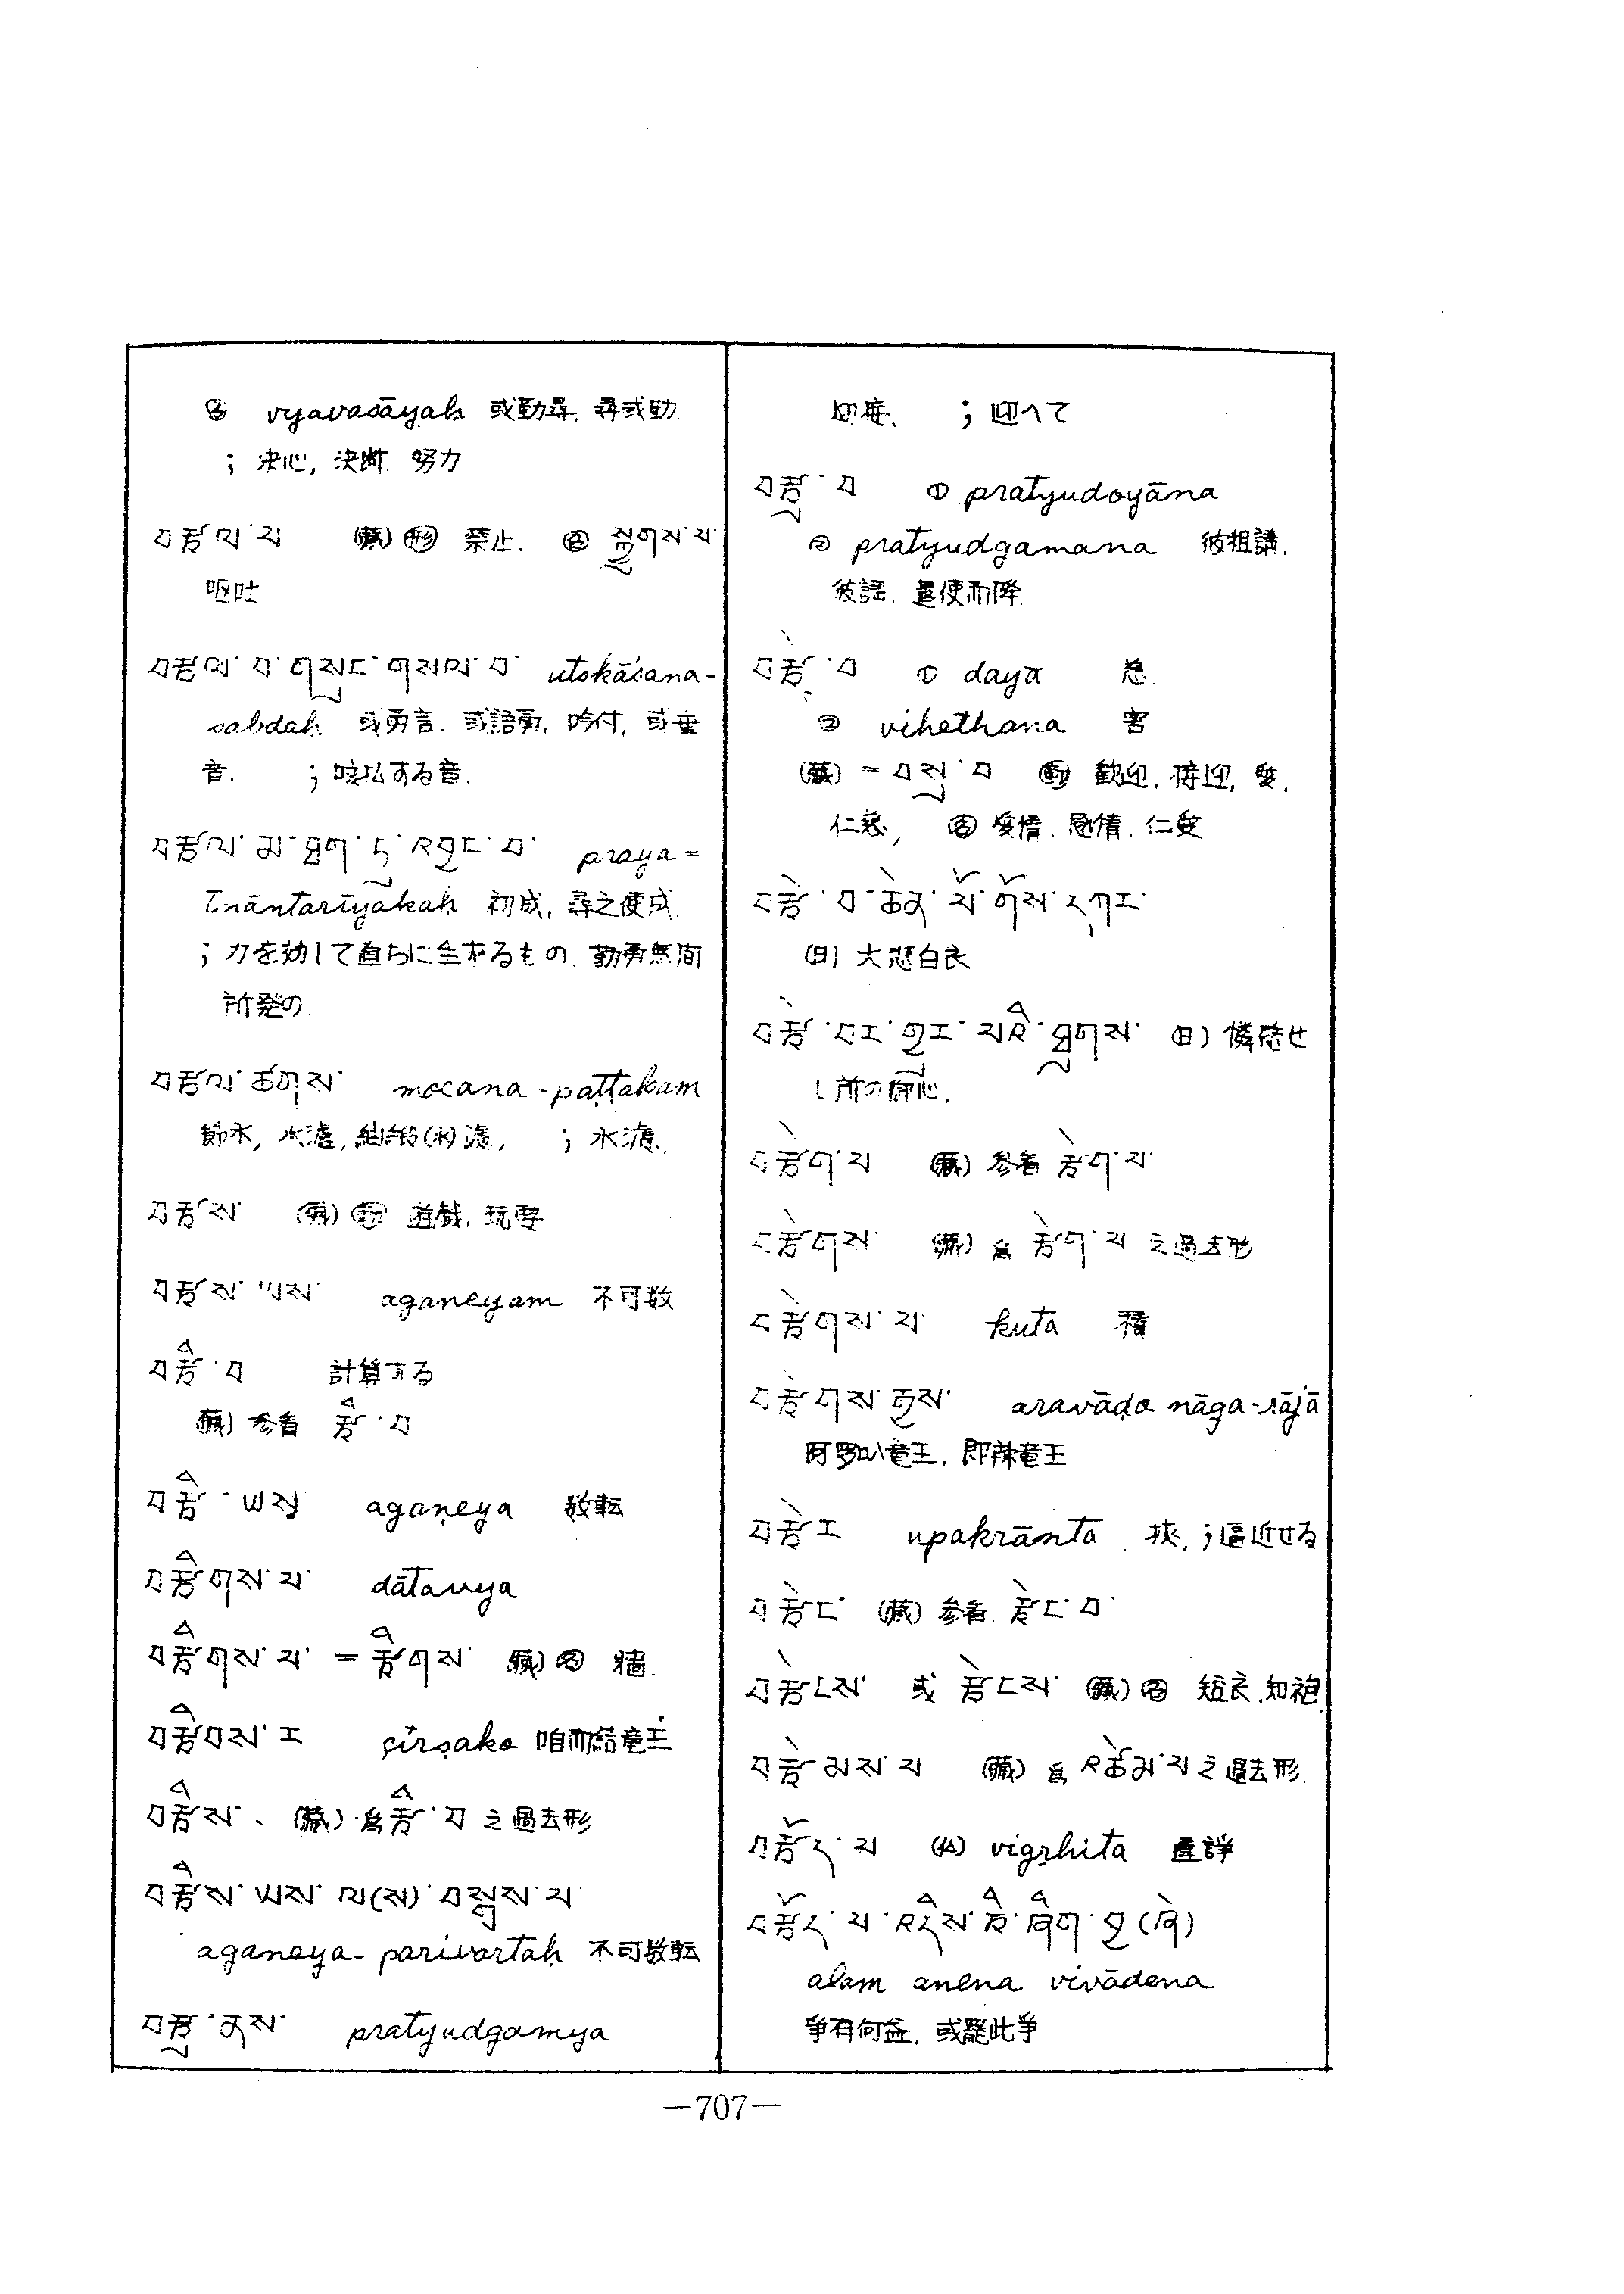 ② vyavasāyah 或勤尋, 尋或勤
; 決心, 決断. 努力
བརྩལ་པ (藏) 形 禁止. 名 སྐྱུགས་པ་
呕吐
བརྩལ་བ་གསུང་གསལ་བ་ utskāśana-
sabdah 或勇言. 或語勇, 吟付, 或垂
音. ; 咳払する音.
བརྩལ་མ་ཐག་ཏུ་འབྱུང་བ་ praya=
tnāntarīyakah 初成, 尋之便成
; 力を効して直らに生ずるもの. 勤勇無間
所発の
བརྩལ་ཚགས་ mocana-paṭṭakam
節水, 水濾, (水)濾, ; 水濾.
བརྩས (藏) 動 遊戲, 玩耍
བརྩས་ཡས་ aganeyam 不可数
བརྩི་བ 計算する
(藏) 参看 རྩི་བ
བརྩི་ཡས aganeya 数転
བརྩིགས་པ་ dātavya
བརྩིགས་པ་ = རྩིགས་ (藏) 名 牆.
བརྩིབས་ར çīrṣako 咱而結竜王
བརྩིས་、(藏) 為 རྩི་བ 之過去形
བརྩིས་ཡས་ལ(ས)་བསྒྲས་པ
aganeya-parivartaḥ 不可数転
བརྩུ་ནས་ pratyudgamya
迎接、 ; 迎へて
བརྩུ་བ ① pratyudoyāna
② pratyudgamana 彼祖講.
彼話. 還便而降.
བརྩེ་བ ① dayā 慈.
② vihethana 害
(藏) = བསུ་བ 動 歓迎. 接迎, 愛.
仁慈, 名 愛情. 感情. 仁愛
བརྩེ་བ་ཆེན་པོ་གོས་དཀར་
(日) 大悲白衣
བརྩེ་བར་གྱུར་པའི་ཐུགས་ (日) 憐愍せ
し所の御心.
བརྩེག་པ (藏) 参看 རྩེག་པ་
བརྩེགས་ (藏) 為 རྩེག་པ 之過去形
བརྩེགས་པ་ kuta 積
བརྩེགས་རྒྱས་ aravāḍo nāga-rājā
阿罗叭竜王, 即辣竜王
བརྩེར upakrānta 挾, ; 逼近せる
བརྩེང་ (藏) 参看 རྩེང་བ་
བརྩེངས་ 或 རྩེངས་ (藏) 名 短衣. 短袍
བརྩེམས་པ (藏) 為 འཚེམ་པ 之過去形.
བརྩོད་པ vigṛhita 諍
བརྩོད་པ་འདིས་ཅི་ཞིག་བྱ(ཞེ)
alam anena vivādena
爭有何益, 或罷此爭
—707—